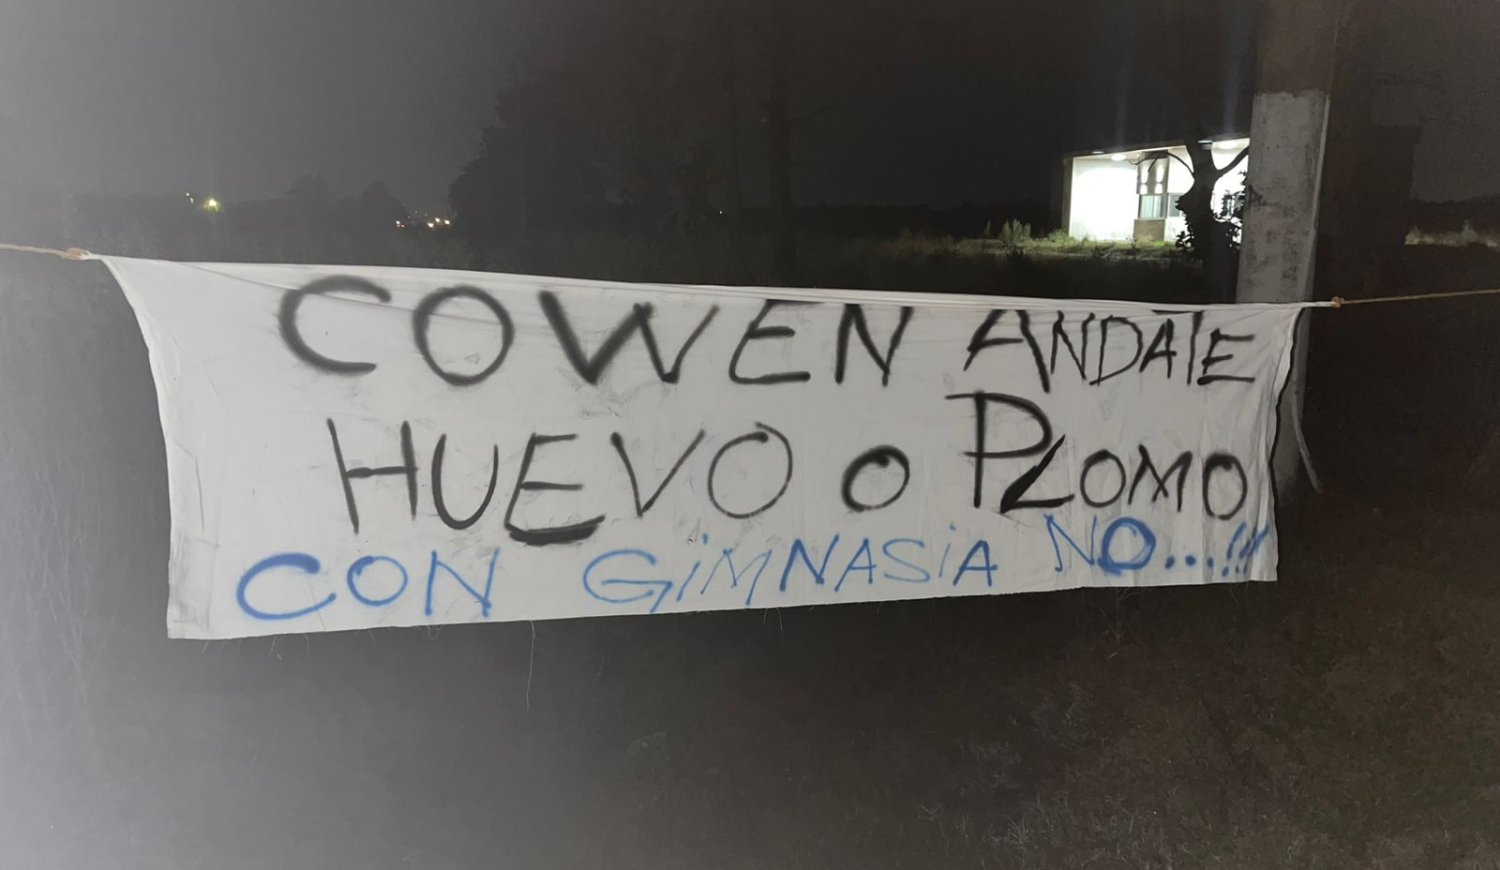 COWEN ANDATE
HUEVO o PLOMO
CON GiMNASiA NO...!!!